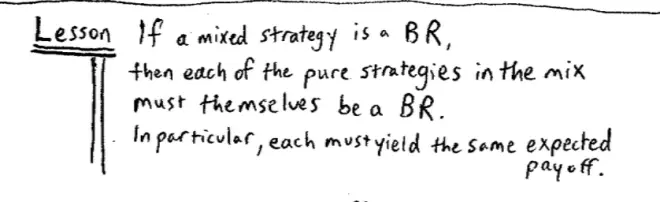 Lesson If a mixed strategy is a BR,
then each of the pure strategies in the mix
must themselves be a BR.
In particular, each must yield the same expected
payoff.